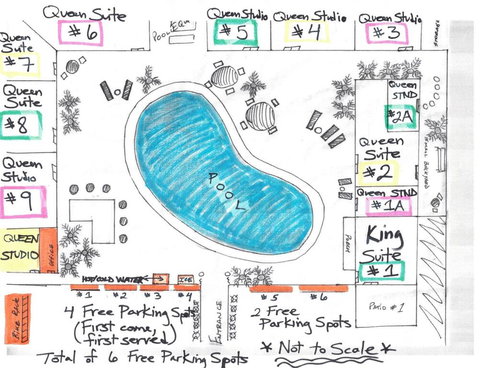 Queen Suite
#6
Queen Studio
#5
Queen Studio
#4
Queen Studio
#3
Queen
Suite
#7
Queen
Suite
#8
Queen
Studio
#9
QUEEN
STUDIO
OFFICE
Queen
STND
#2A
Queen
Suite
#2
Queen STND
#1A
King
Suite
#1
PORCH
PATIO #1
POOL
HOT/COLD WATER
ICE
#1 #2 #3 #4
#5 #6
ENTRANCE
BIKE RACK
4 Free Parking Spots
(First come,
first served)
2 Free
Parking Spots
Total of 6 Free Parking Spots
*Not to Scale*